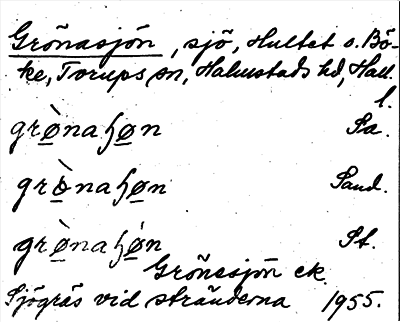 Grönasjön, sjö, Hultet o. Bö-
ke, Torups sn, Halmstads hd, Hall.
l.
grø̠̀naɧø̠n Sa.
grø̠̀naɧø̠n Sand.
grø̠̀naɧǿ̠n St.
Grönasjön ek.
Sjögräs vid stränderna 1955.